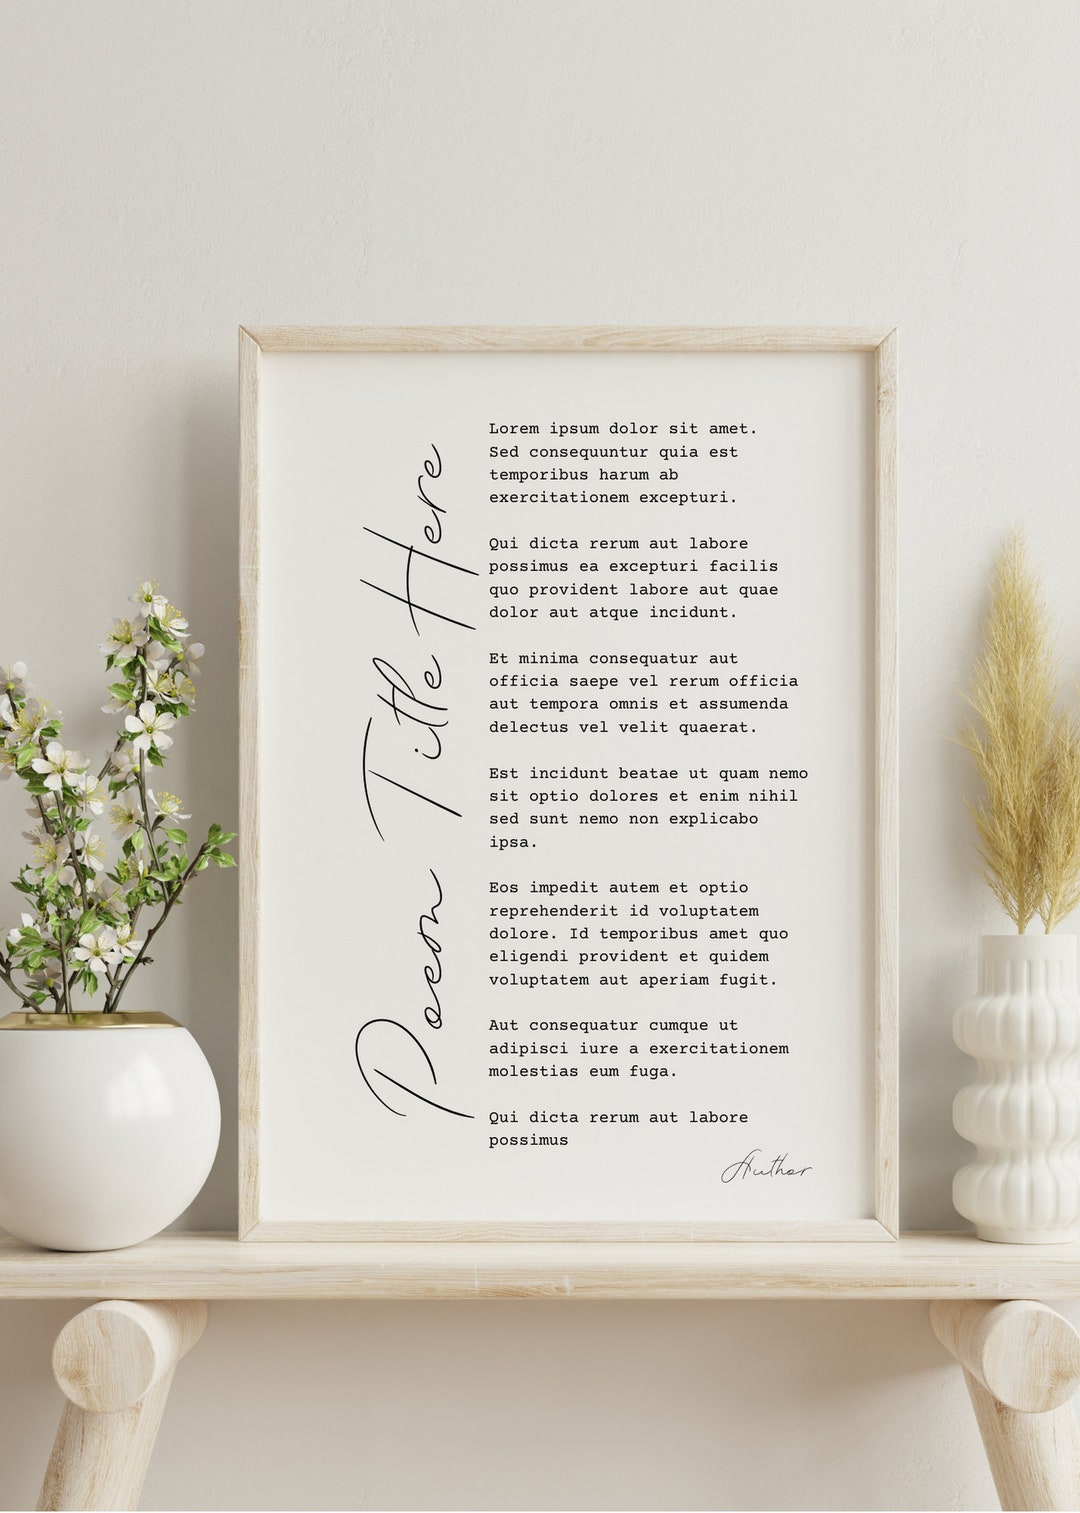 Poem Title Here
Lorem ipsum dolor sit amet.
Sed consequuntur quia est
temporibus harum ab
exercitationem excepturi.
Qui dicta rerum aut labore
possimus ea excepturi facilis
quo provident labore aut quae
dolor aut atque incidunt.
Et minima consequatur aut
officia saepe vel rerum officia
aut tempora omnis et assumenda
delectus vel velit quaerat.
Est incidunt beatae ut quam nemo
sit optio dolores et enim nihil
sed sunt nemo non explicabo
ipsa.
Eos impedit autem et optio
reprehenderit id voluptatem
dolore. Id temporibus amet quo
eligendi provident et quidem
voluptatem aut aperiam fugit.
Aut consequatur cumque ut
adipisci iure a exercitationem
molestias eum fuga.
Qui dicta rerum aut labore
possimus
Author